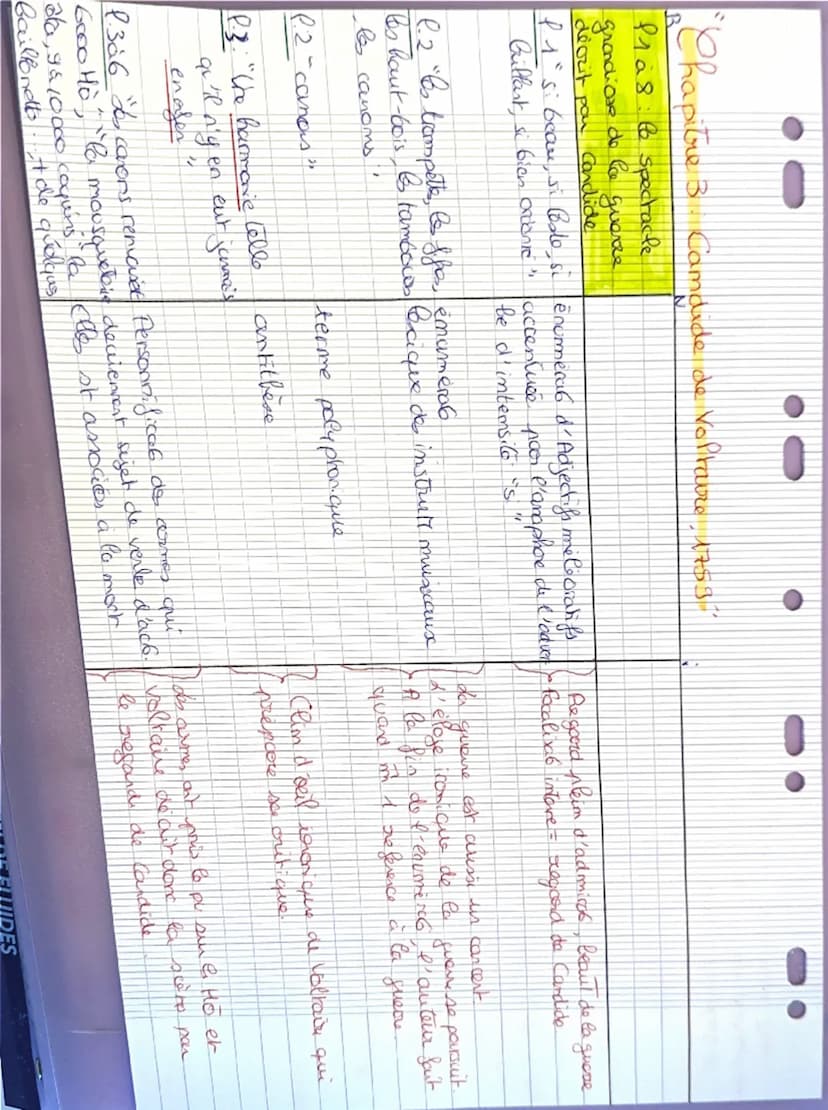 "Chapitre 3 : Candide de Voltaire, 1759"
R
N
l1 à 8 : le spectacle
grandiose de la guerre
décrit par Candide
l 1 "si beau, si leste, si
brillant, si bien ordonné"
Enumérat° d'Adjectifs mélioratifs
accentuée par l'anaphore de l'adver
be d'intensité "s"
Regard plein d'admirat°, beauté de la guerre
focalisat° interne = regard de Candide
l.2 "les trompettes, les fifres,
les haut-bois, les tambours
, les canons"
énumérat°
lexique de instrumt musicaux
La guerre est aussi un concert
L'éloge ironique de la guerre se poursuit.
A la fin de l'énumérat°, l'auteur fait
quand m̂ 1 référence à la guerre
l.2 - canons"
terme polyphonique
l.3. "Une harmonie telle
qu'il n'y en eut jamais
enfer"
antithèse
Clin d'œil ironique de Voltaire qui
prépare sa critique.
l.3à6 "Les canons
6000 Hô", "la mousqueterie
ota, 9à10 000 coquins", "la
baïonnette ..., + de quelques
Personnificat° des armes qui
deviennent sujet de verbe d'act°.
Elles st associées à la mort
Les armes ont pris le pv sur les Hô et
Voltaire décrit donc la scène par
le regard de Candide.
ETUDES